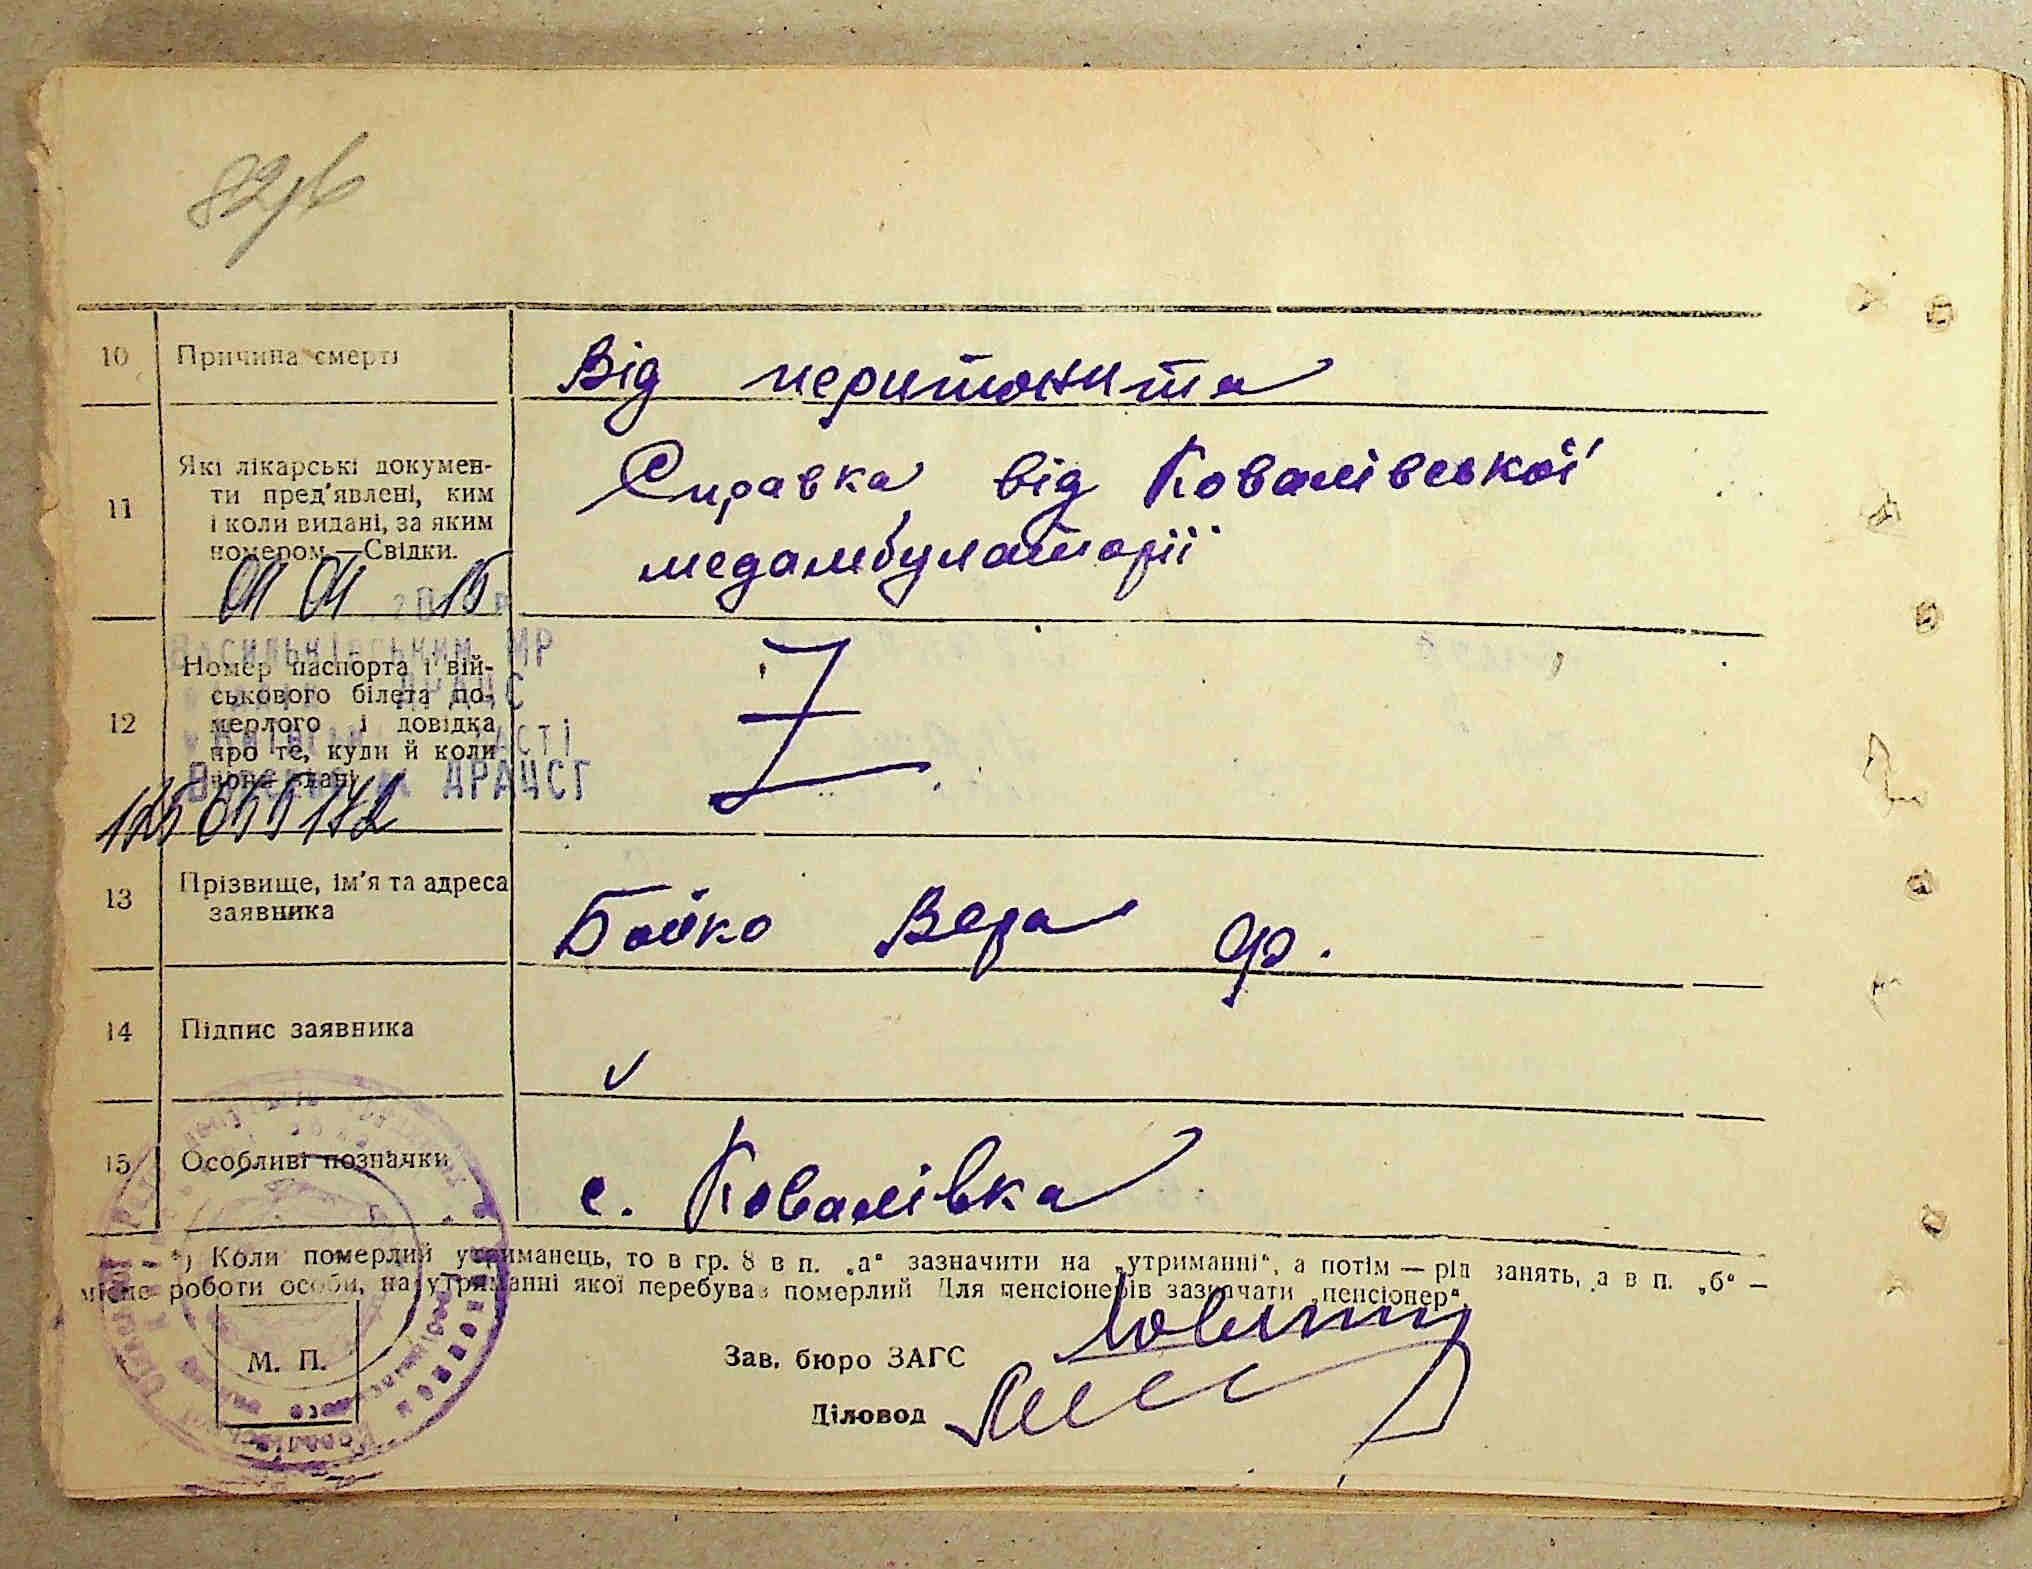 82
10 Причина смерті Від перитонита
11 Які лікарські докумен-
ти пред'явлені, ким
і коли видані, за яким
номером.—Свідки.
Справка від Ковалівської
медамбулаторії
01 04 2015
Васильківським МР
12 Номер паспорта і вій-
ськового білета по-
мерлого і довідка
про те, куди й коли
вони здані
Z
ДРАЦС
ДРАЦСГ
13 Прізвище, ім'я та адреса
заявника
Бойко Вера Ф.
14 Підпис заявника
15 Особливі позначки с. Ковалівка
*) Коли померлий утриманець, то в гр. 8 в п. „а“ зазначити на „утриманні“, а потім — рід занять, а в п. „б“ —
місце роботи особи, на утриманні якої перебував померлий Для пенсіонерів зазначати „пенсіонер“.
М. П.
Зав. бюро ЗАГС
Діловод